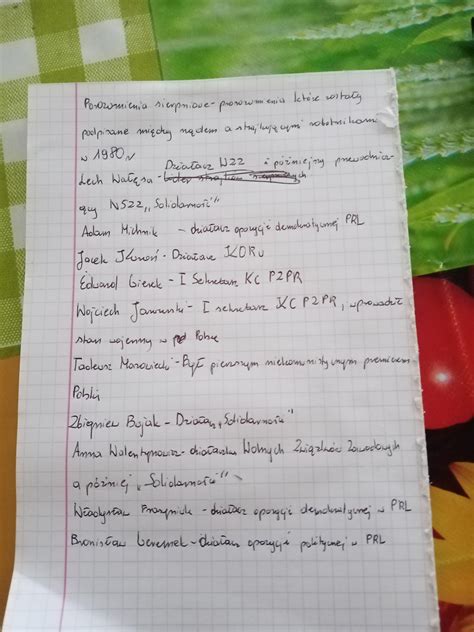 Porozumienia sierpniowe - porozumienia które zostały
podpisane między rządem a strajkującymi robotnikami
w 1980r
Działacz WZZ i późniejszy przewodnicz-
Lech Wałęsa - lider strajków sierpniowych
ący NSZZ „Solidarność"
Adam Michnik - działacz opozycji demokratycznej PRL
Jacek Kuroń - Działacz KORu
Edward Gierek - I Sekretarz KC PZPR
Wojciech Jaruzelski - I sekretarz KC PZPR, wprowadził
stan wojenny w Polsce
Tadeusz Mazowiecki - Był pierwszym niekomunistycznym premierem
Polski
Zbigniew Bujak - Działacz „Solidarność"
Anna Walentynowicz - działaczka Wolnych Związków Zawodowych
a później „Solidarności"
Władysław Frasyniuk - działacz opozycji demokratycznej w PRL
Bronisław Geremek - działacz opozycji politycznej w PRL